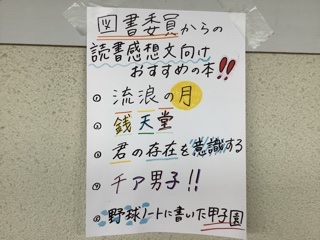 図書委員からの
読書感想文向け
おすすめの本!!
① 流浪の月
② 銭天堂
③ 君の存在を意識する
④ チア男子!!
⑤ 野球ノートに書いた甲子園